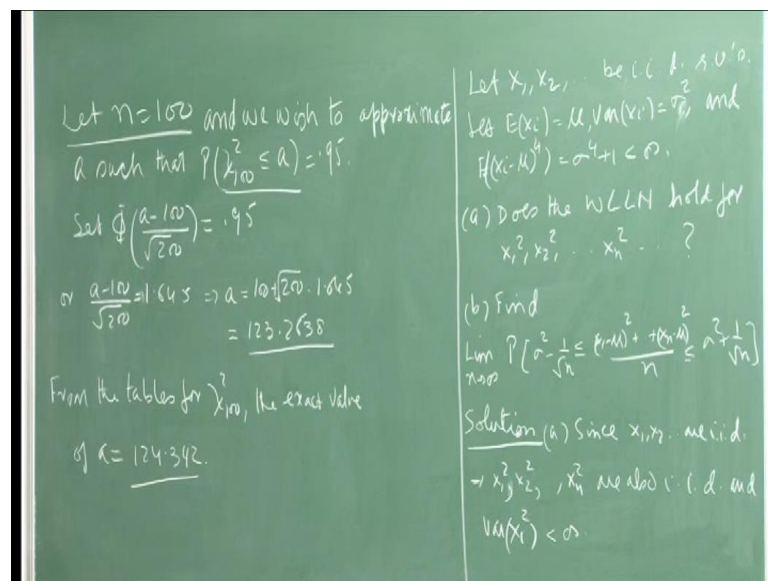 Let n=100 and we wish to approximate
a such that P(χ²₁₀₀ ≤ a) = .95.
Set Φ((a-100)/√200) = .95
or (a-100)/√200 = 1.645 ⇒ a = 100+√200 · 1.645
= 123.2638
From the tables for χ²₁₀₀, the exact value
of a = 124.342.
Let X₁, X₂, ... be i.i.d. r.v's.
Let E(Xi) = μ, Var(Xi) = σ², and
E(Xi-μ)⁴ = σ⁴+1 < ∞.
(a) Does the WLLN hold for
X₁², X₂², ... Xn² ... ?
(b) Find
Lim n→∞ P[σ² - 1/√n ≤ ((X₁-μ)² + ... + (Xn-μ)²)/n ≤ σ² + 1/√n]
Solution (a) Since X₁, X₂ .. are i.i.d.
→ X₁², X₂², , Xn² are also i.i.d. and
Var(X₁²) < ∞